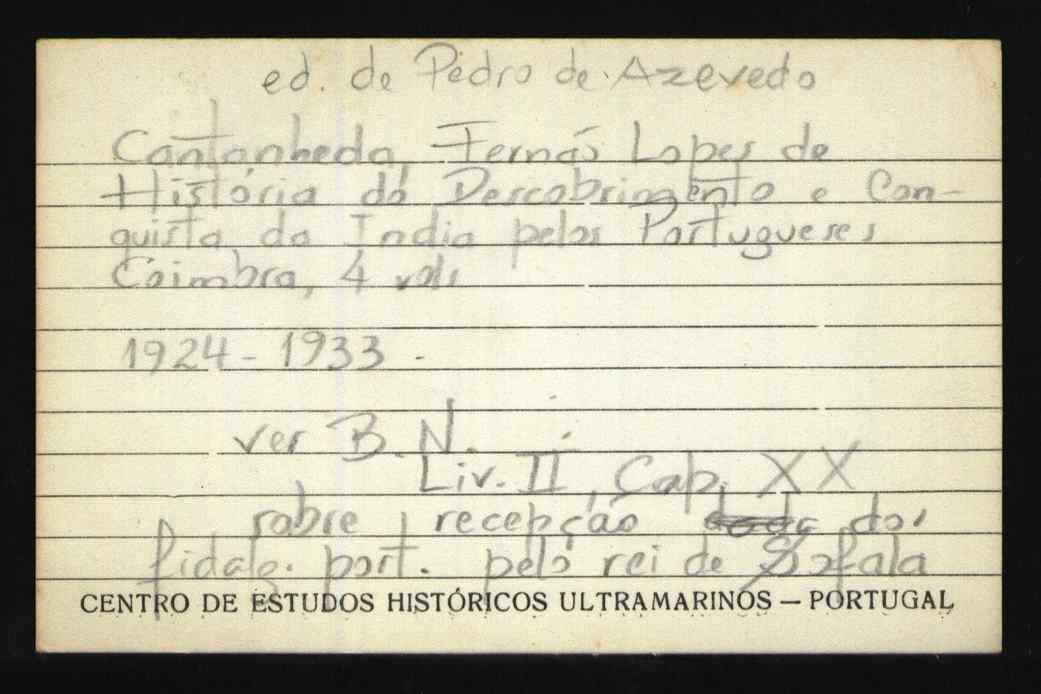 ed. de Pedro de Azevedo
Cantanheda, Fernãs Lopes de
História do Descobrimento e Con-
quista da India pelos Portugueses
Coimbra, 4 vols
1924-1933.
ver B.N.
Liv. II, Cap. XX
sobre recepção dos
fidalg. port. pelo rei de Sofala
CENTRO DE ESTUDOS HISTÓRICOS ULTRAMARINOS — PORTUGAL